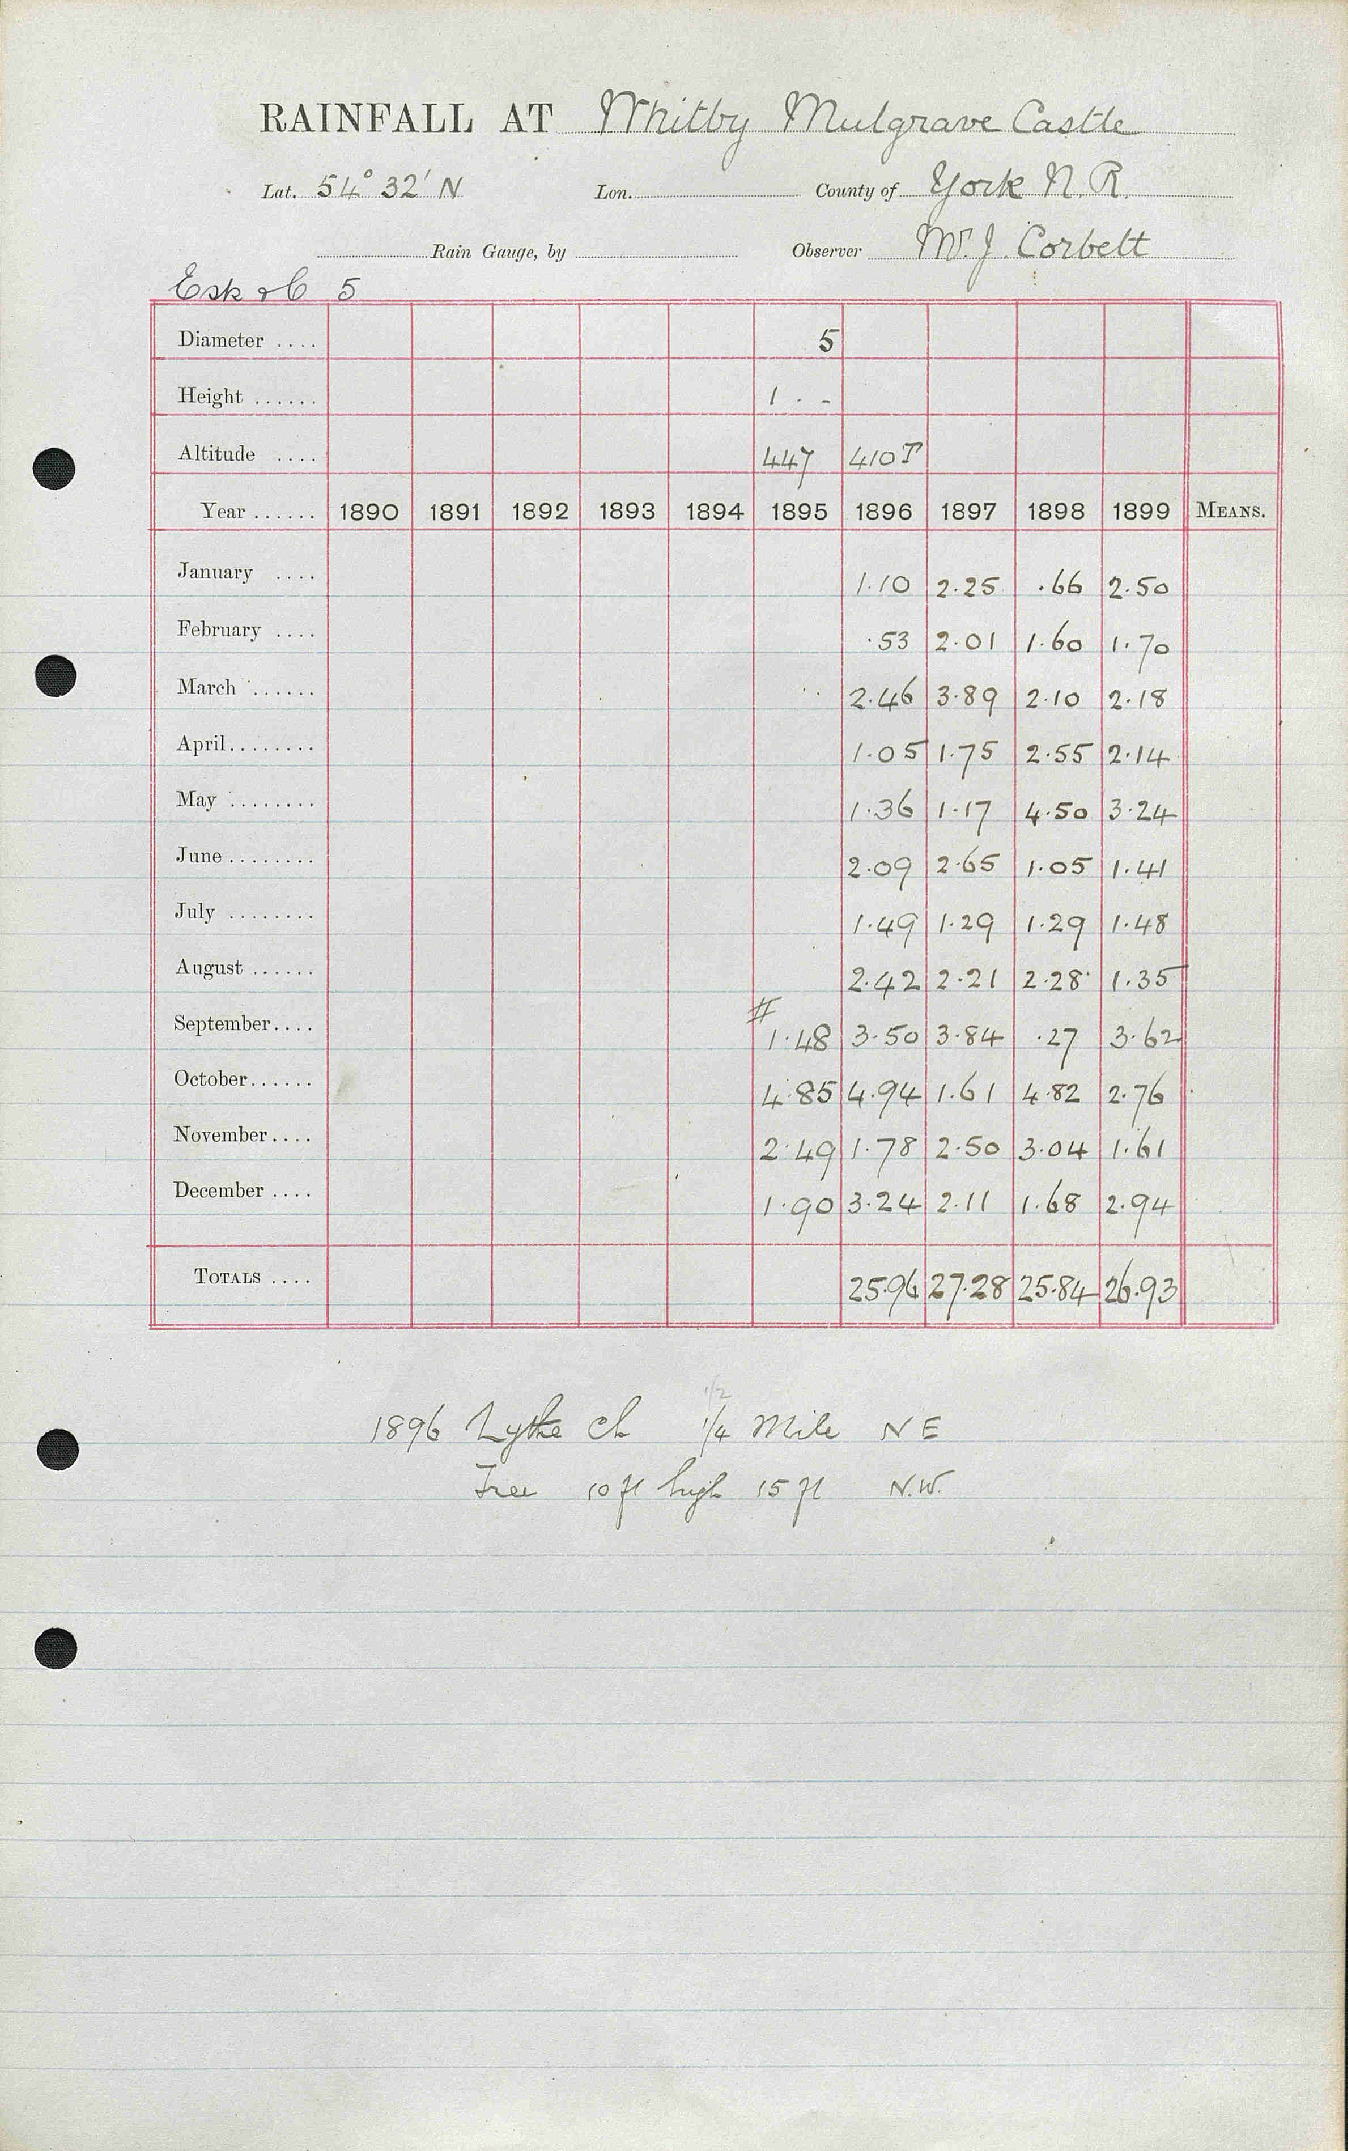 RAINFALL AT Whitby Mulgrave Castle
Lat. 54° 32' N Lon. County of York N.R.
Rain Gauge, by Observer Mr. J. Corbett
Esk & C 5
Diameter .... 5
Height ...... 1 . -
Altitude .... 447 410T
Year ...... 1890 1891 1892 1893 1894 1895 1896 1897 1898 1899 MEANS.
January .... 1.10 2.25 .66 2.50
February .... .53 2.01 1.60 1.70
March ...... 2.46 3.89 2.10 2.18
April........ 1.05 1.75 2.55 2.14
May ........ 1.36 1.17 4.50 3.24
June ........ 2.09 2.65 1.05 1.41
July ........ 1.49 1.29 1.29 1.48
August ...... 2.42 2.21 2.28 1.35
September.... # 1.48 3.50 3.84 .27 3.62
October...... 4.85 4.94 1.61 4.82 2.76
November.... 2.49 1.78 2.50 3.04 1.61
December .... 1.90 3.24 2.11 1.68 2.94
TOTALS .... 25.96 27.28 25.84 26.93
1/2
1896 Lythe Ch 1/4 Mile NE
Tree 10 ft high 15 ft N.W.